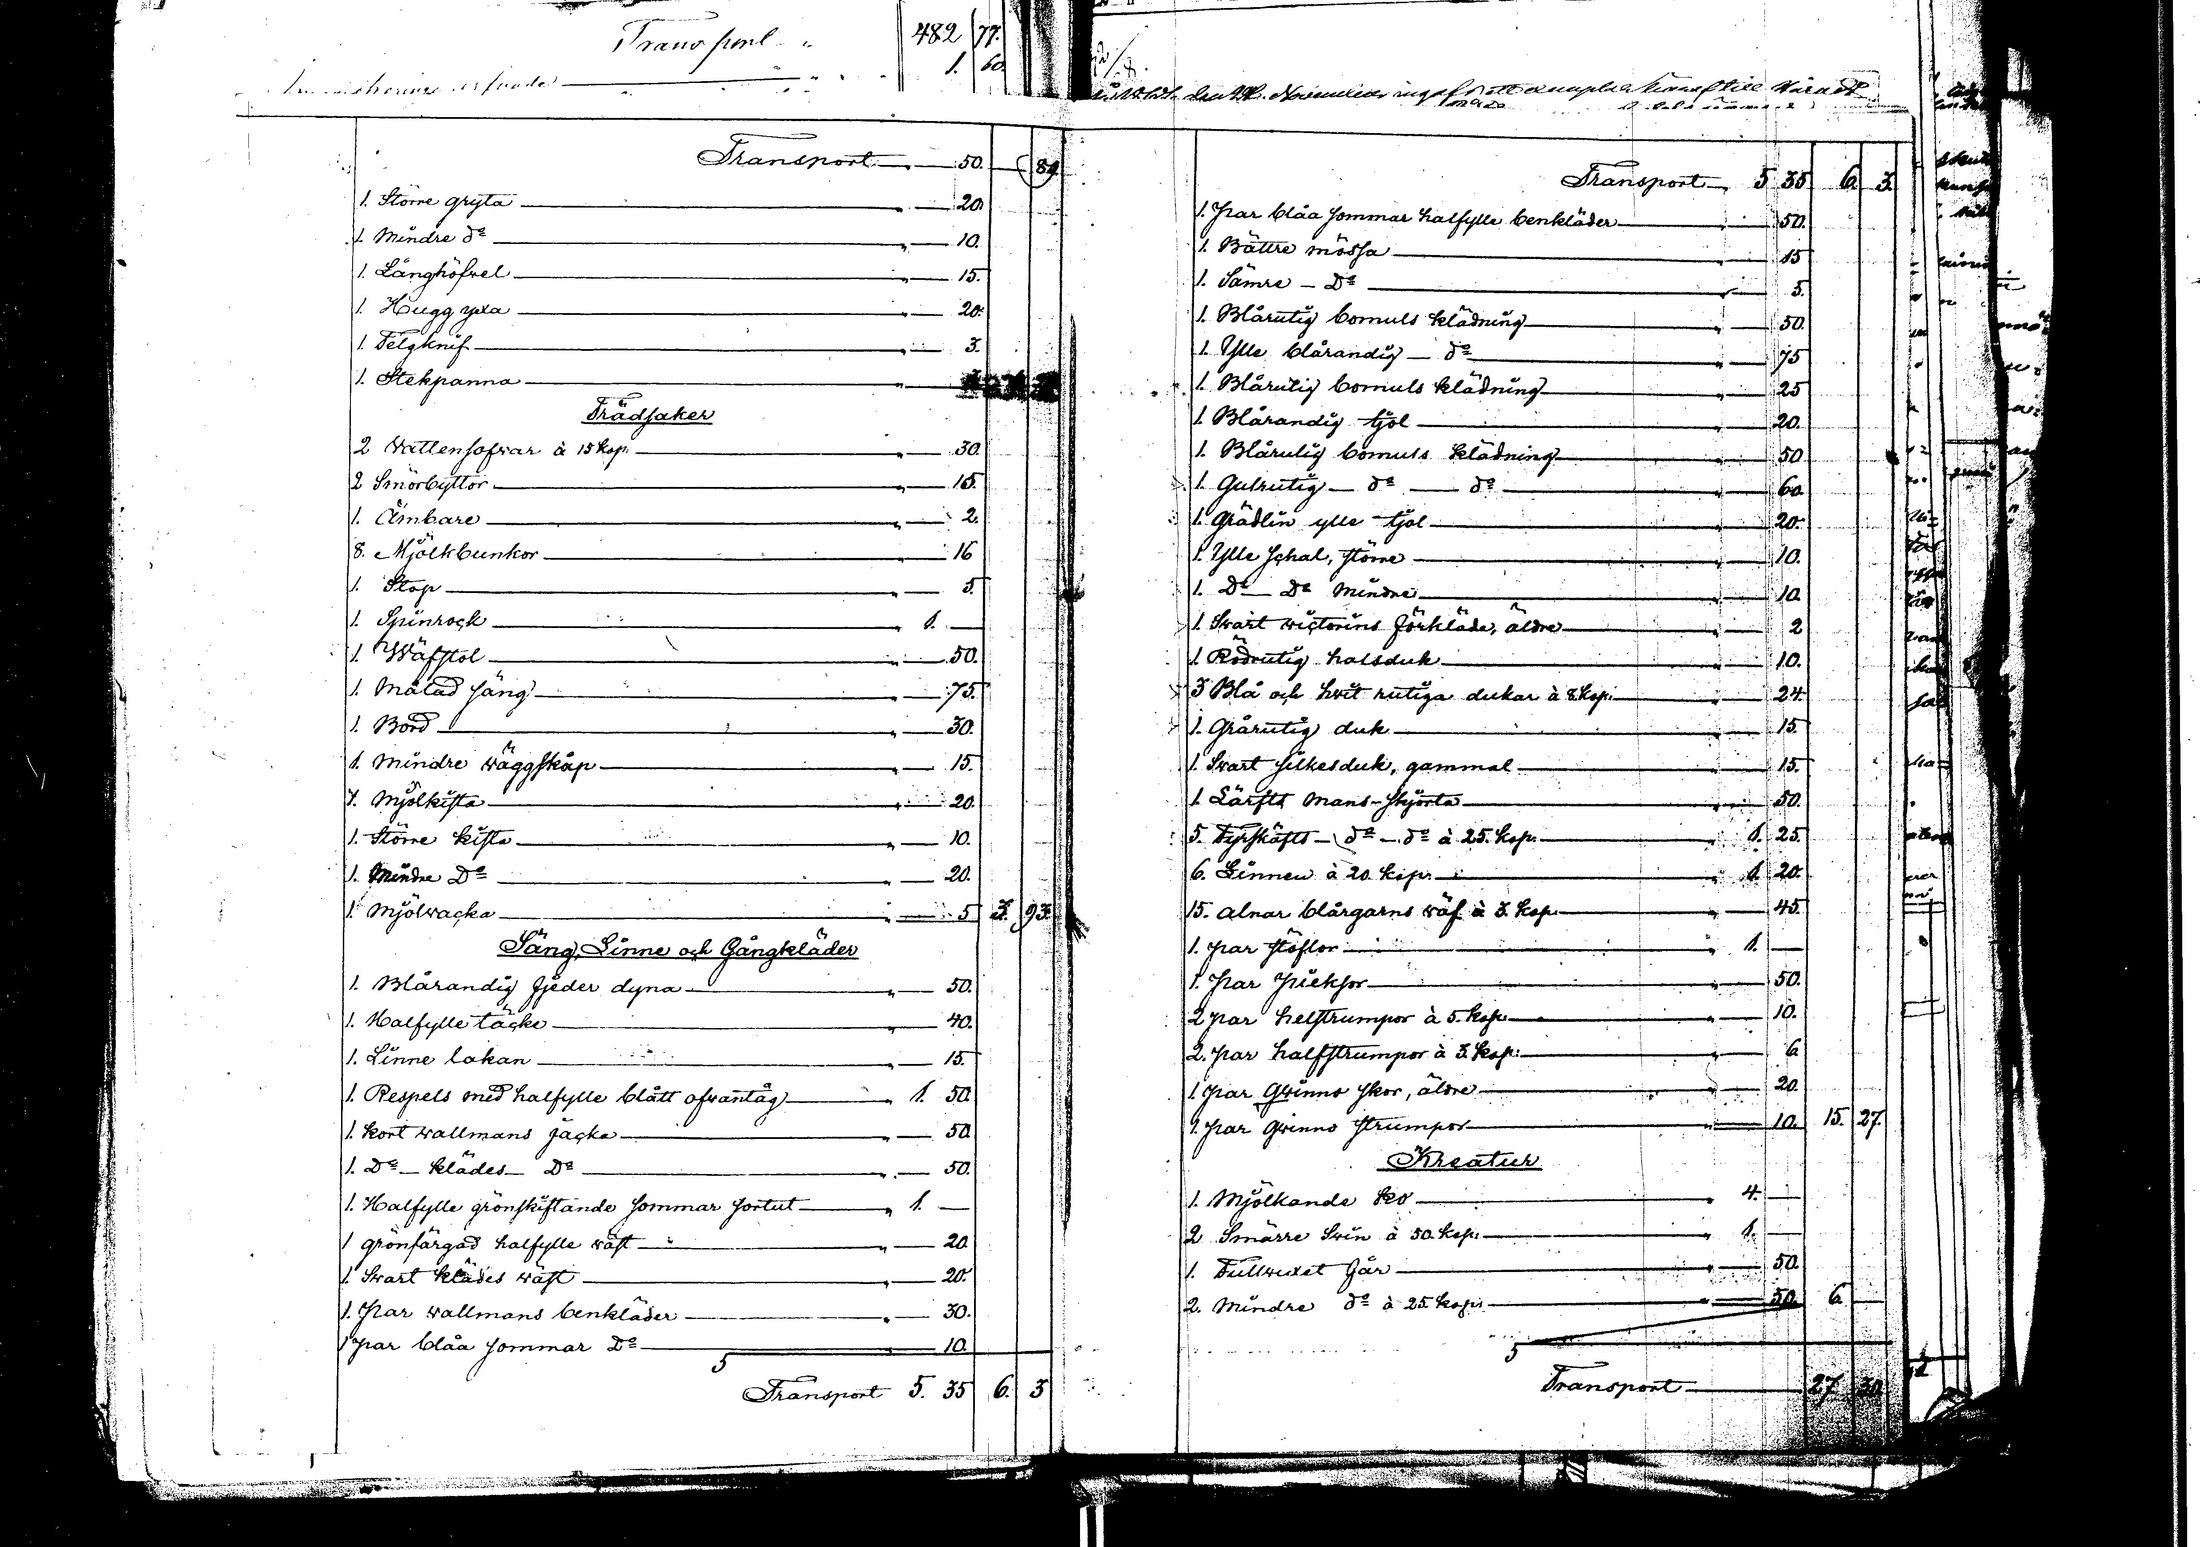 Transport 482 77.
1. 60.
Transport 50. 89
1. Större gryta 20.
1. Mindre d:o 10.
1. Långhöfvel 15.
1. Hugg yxa 20.
1. Telgknif 3.
1. Stekpanna
Trädsaker
2 Vattensofvar à 15 kop. 30.
2 Smörbyttor 15.
1. Ämbare 2.
8. Mjölkbunkor 16
1. Stop 5.
1. Spinrock 1. —
1. Wäfstol 50.
1. Målad säng 75.
1. Bord 30.
1. Mindre väggskåp 15.
1. Mjölkista 20.
1. Större kista 10.
1. Mindre D:o 20.
1. Mjölvacka 5 3. 93.
Säng, Linne och Gångkläder
1. Blårandig fjeder dyna 50.
1. Halfylle täcke 40.
1. Linne lakan 15.
1. Respels med halfylle blått ofvantåg 1. 50.
1. Kort wallmans jacka 50.
1. D:o klädes D:o 50.
1. Halfylle grönskiftande sommar sortut 1. —
1 grönfärgad halfylle väst 20.
1. Svart klädes väst 20.
1. Par wallmans benkläder 30.
1 par blåa sommar D:o 10.
Transport 5. 35 6. 3
Transport 5 35 6. 3.
1. Par blåa sommar halfylle benkläder 50.
1. Bättre mössa 15
1. Sämre D:o 5.
1. Blårutig bomuls klädning 50.
1. Ylle blårandig d:o 75
1. Blårutig bomuls klädning 25
1. Blårandig tjol 20.
1. Blårutig bomuls klädning 50
1. Gulrutig d:o d:o 60
1. Grädlin ylle tjol 20.
1. Ylle schal, större 10.
1. D:o D:o Mindre 10.
1. Svart victorins förkläde, äldre 2
1 Rödrutig halsduk 10.
3 Blå och hvit rutiga dukar à 8 kop. 24.
1. Grårutig duk 15.
1. Svart silkesduk, gammal 15.
1. Lärfts mans-skjorta 50.
5. Fyrskäfts d:o d:o à 25. kop. 1. 25.
6. Linnen à 20. kop. 1. 20.
15. alnar blårgarns väf à 3. kop. 45.
1. par stöflor 1. —
1. Par pieksor 50.
2 par helstrumpor à 5. kop. 10.
2. par halfstrumpor à 3. kop. 6
1 par Qvinno skor, äldre 20
1 par Qvinno strumpor 10. 15. 27.
Kreatur
1. Mjölkande ko 4. —
2 Smärre Svin à 50. kop. 1. —
1. Fullvuxet får 50.
2. Mindre d:o à 25. kop. 50. 6. —
Transport 27. 30.